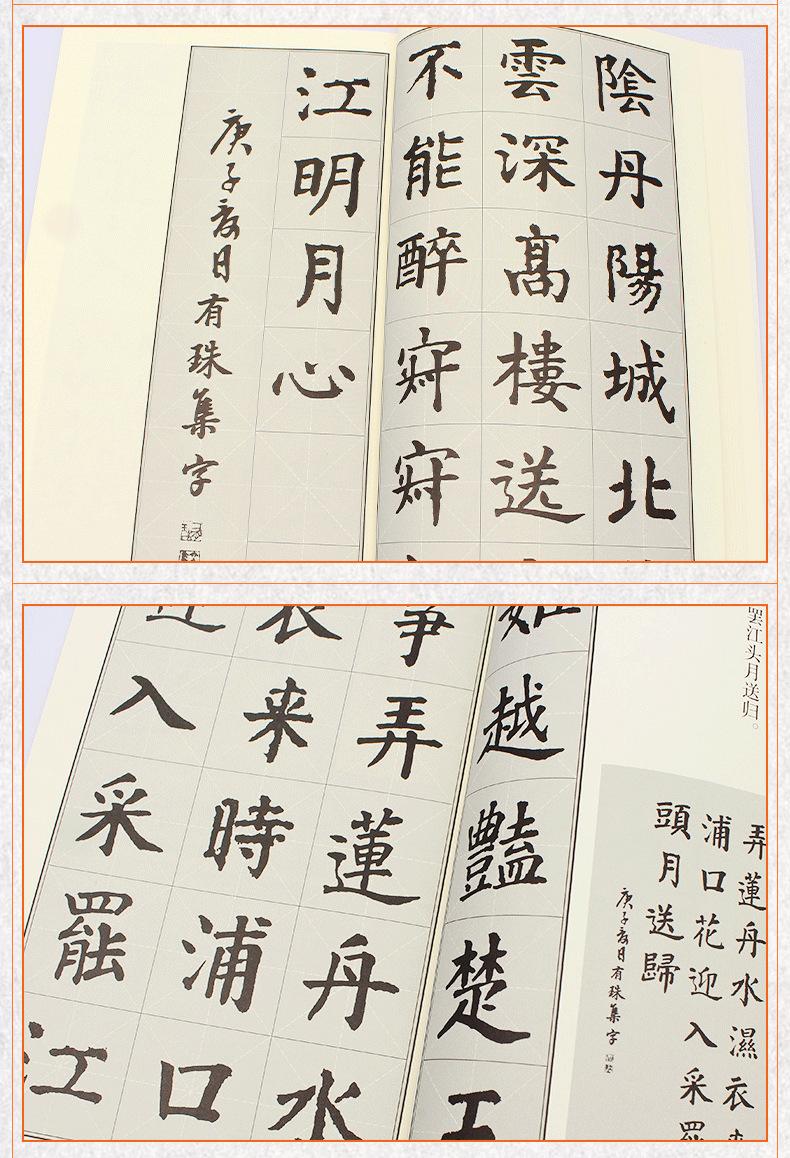 陰丹陽城北
雲深髙樓送
不能醉寂寂
江明月心
庚子夏日有珠集字
罢江头月送归。
弄蓮舟水濕衣来
浦口花迎入采罷
頭月送歸
庚子夏日有珠集字
越豔楚王
爭弄蓮舟水
衣来時浦口
迎入采罷江